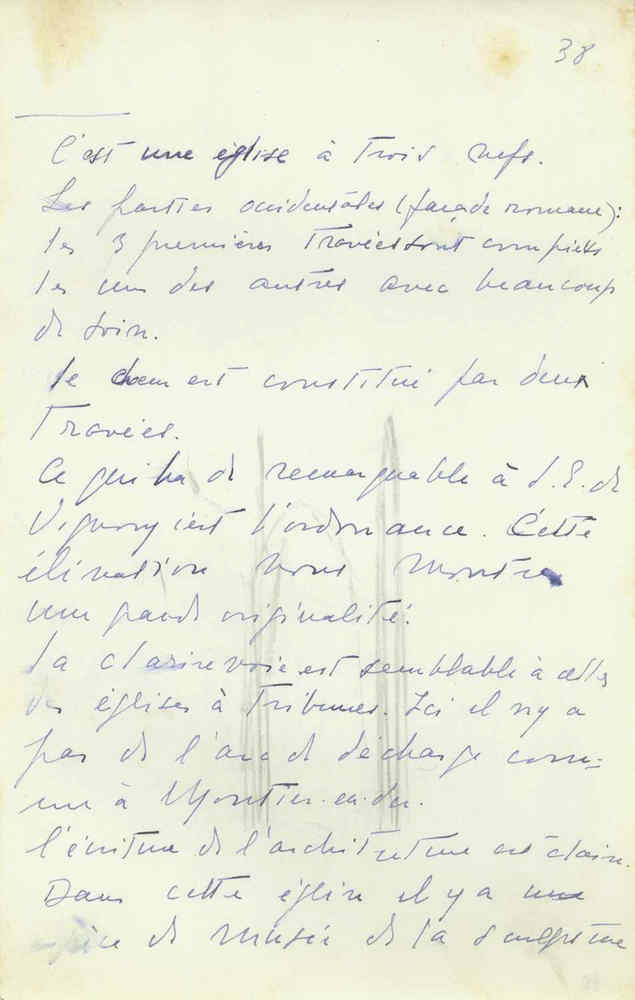 38
C'est une église à trois nefs.
Les parties occidentales (façade romane):
les 3 premières travées sont copiées
les unes des autres avec beaucoup
de soin.
Le chœur est constitué par deux
travées.
Ce qui ha de remarquable à S. E. de
Vignory c'est l'ordonance. Cette
élévation nous montre
une grande originalité.
La clairevoie est semblable à celles
des églises à tribunes. Ici il n'y a
pas de l'arc de décharge com-
me à Montier-en-der.
L'écriture de l'architecture est claire.
Dans cette église il y a une
de musée de la sculpture